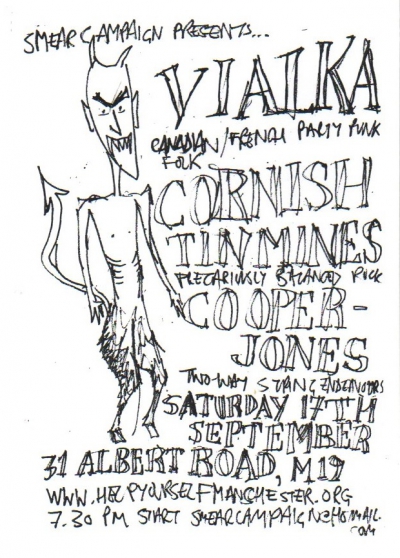 SMEAR CAMPAIGN PRESENTS...
VIALKA
CANADIAN/FRENCH PARTY PUNK
FOLK
CORNISH
TINMINES
PRECARIOUSLY BALANCED ROCK
COOPER-
JONES
TWO-WAY STRING ENDEAVOURS
SATURDAY 17TH
SEPTEMBER
31 ALBERT ROAD, M19
WWW.HELPYOURSELFMANCHESTER.ORG
7.30 PM START SMEARCAMPAIGN@HOTMAIL.
COM